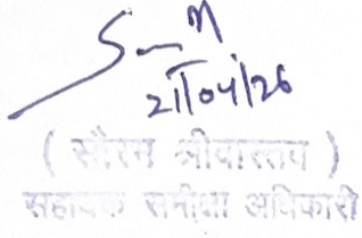 21/04/26
( सौरभ श्रीवास्तव )
सहायक समीक्षा अधिकारी